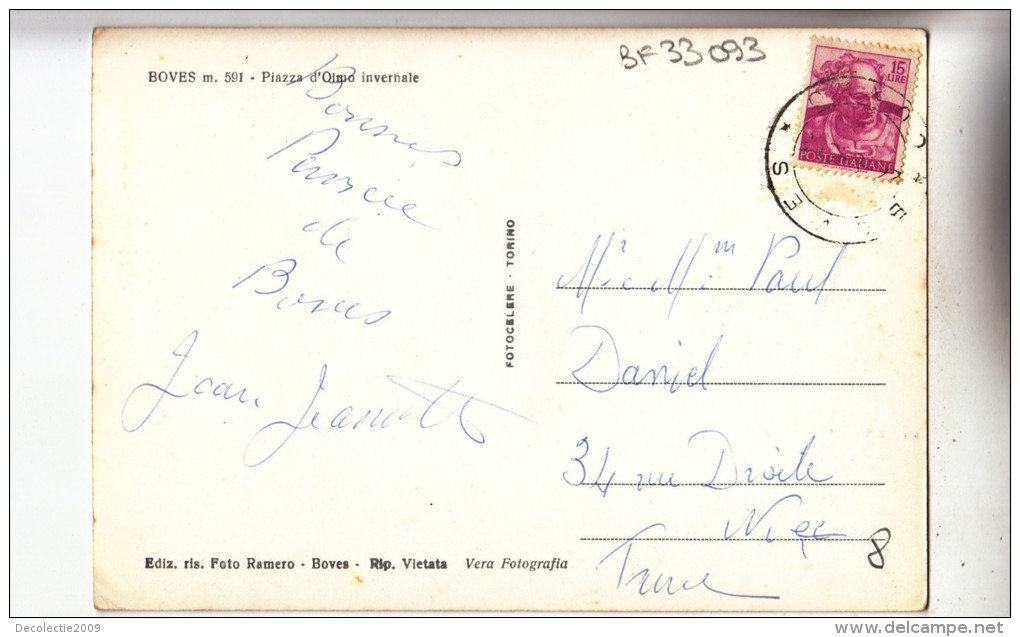 BF33093
BOVES m. 591 - Piazza d'Olmo invernale
15
LIRE
POSTE ITALIANE
Bonnes
Pensée
de
Boves
Jean Jeannette
FOTOCELERE - TORINO
Mr et Mme Paul
Daniel
34 rue Droite
Nice
France
8
Ediz. ris. Foto Ramero - Boves - Rip. Vietata Vera Fotografia
Decolectie2009
delcampe.net